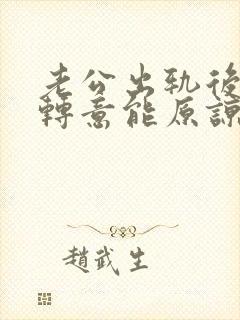 老公出轨後
轉意能原諒
趙武生